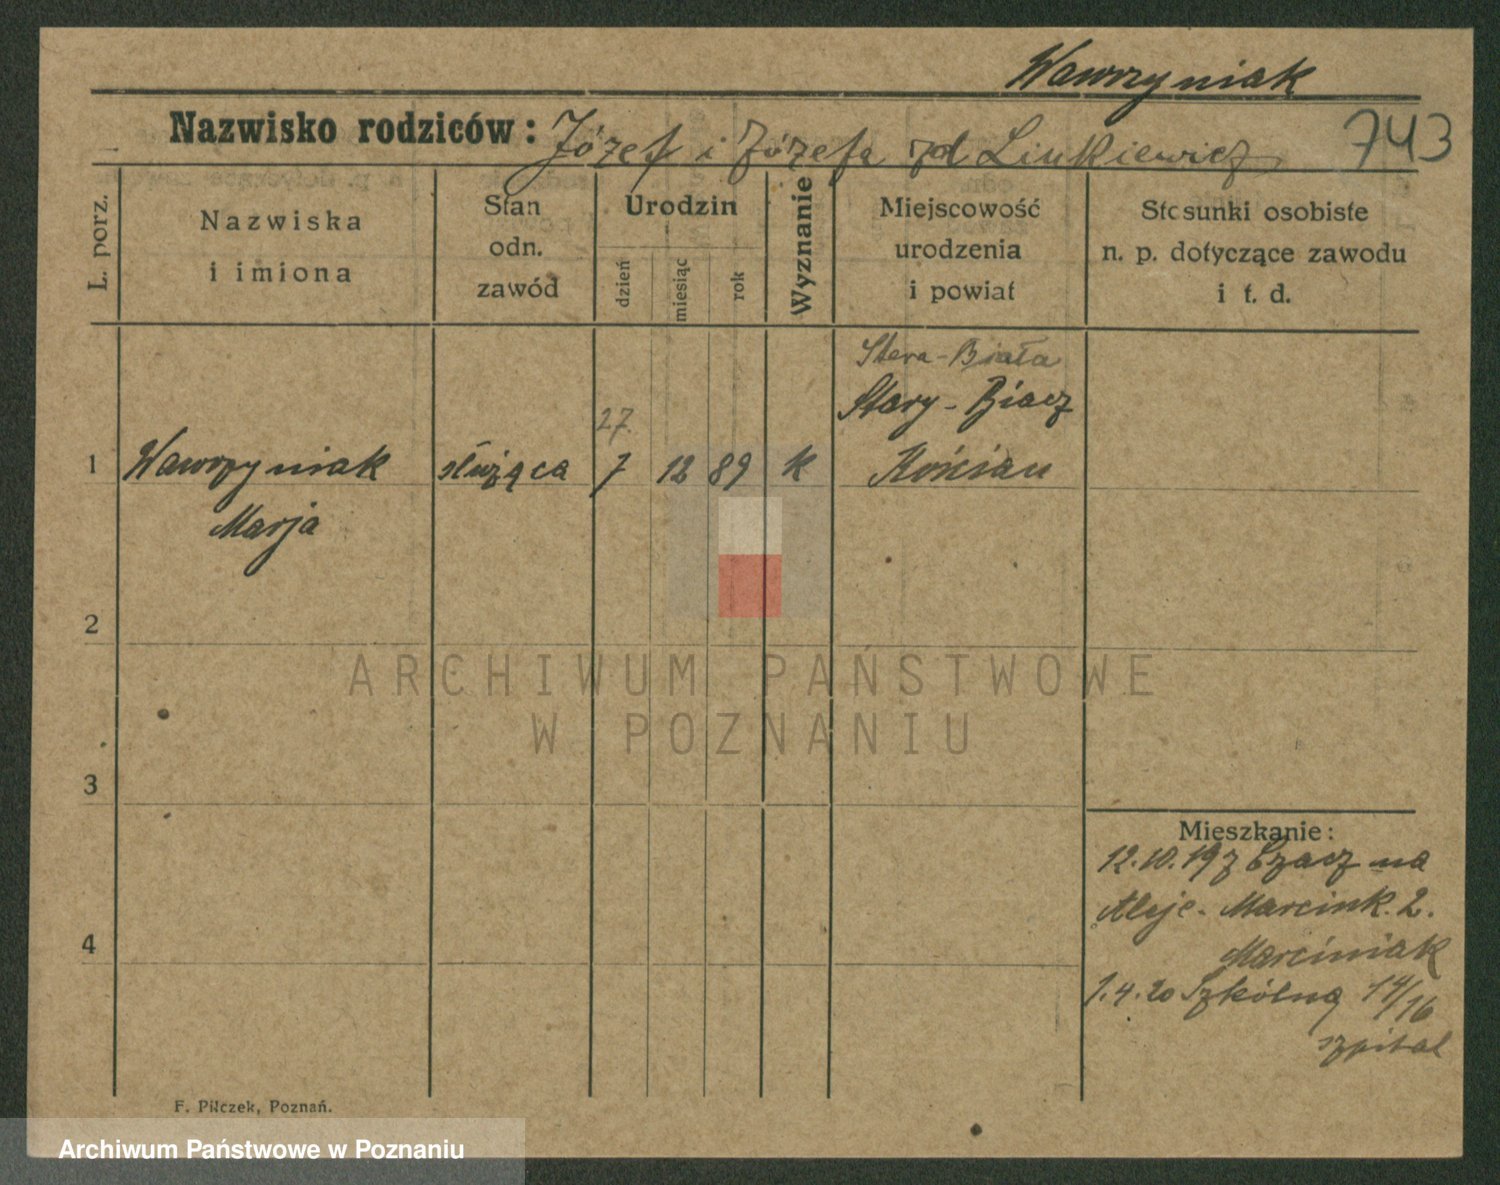 Wawrzyniak
Nazwisko rodziców: Józef i Józefa zd Linkiewicz
743
L. porz.
Nazwiska
i imiona
Stan
odn.
zawód
Urodzin
dzień
miesiąc
rok
Wyznanie
Miejscowość
urodzenia
i powiat
Stosunki osobiste
n. p. dotyczące zawodu
i t. d.
Stera-Biała
Stary-Biacz
27.
1 Wawrzyniak służąca 7 12 89 k Kościan
Marja
2
3
4
ARCHIWUM PAŃSTWOWE
W POZNANIU
Mieszkanie:
12.10.19 z Czacz na
Aleje. Marcink. 2.
Marciniak
1.4.20 Szkólną 14/16
szpital
F. Pilczek, Poznań.
Archiwum Państwowe w Poznaniu